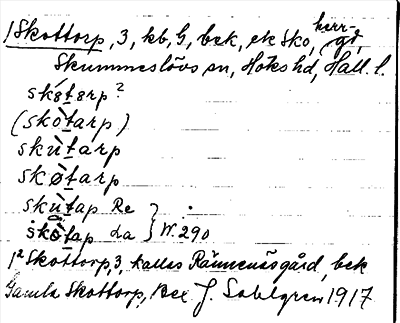 1 Skottorp, 3, kb, G, bek, ek Sko, herr-gd,
Skummeslövs sn, Höks hd, Hall. l.
skøtørp?
(skòtarp)
skùtarp
skøtarp
skùtap Re
skòtap La } W. 290
1² Skottorp, 3, kallas Rännenäsgård, bek
Gamla Skottorp, Bex J. Sahlgren 1917